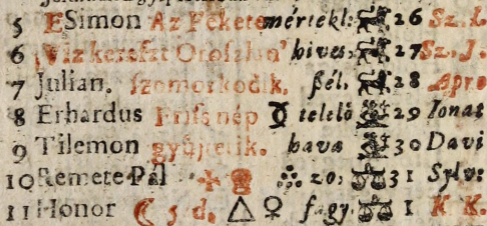 5 E Simon Az Fekete mértékl: 26 Sz. I.
6 Viz kereszt Oroszlan' hives; 27 Sz. J.
7 Julian. szomorkodik. ßél. 28 Apro
8 Erhardus Friss nép ☿ telelö 29 Ionat
9 Tilemon gyüjtetik. hava 30 Davi
10 Remete Pál zo; 31 Sylv:
11 Honor ☾ 5 d. △ ♀ fagy. 1 K K.